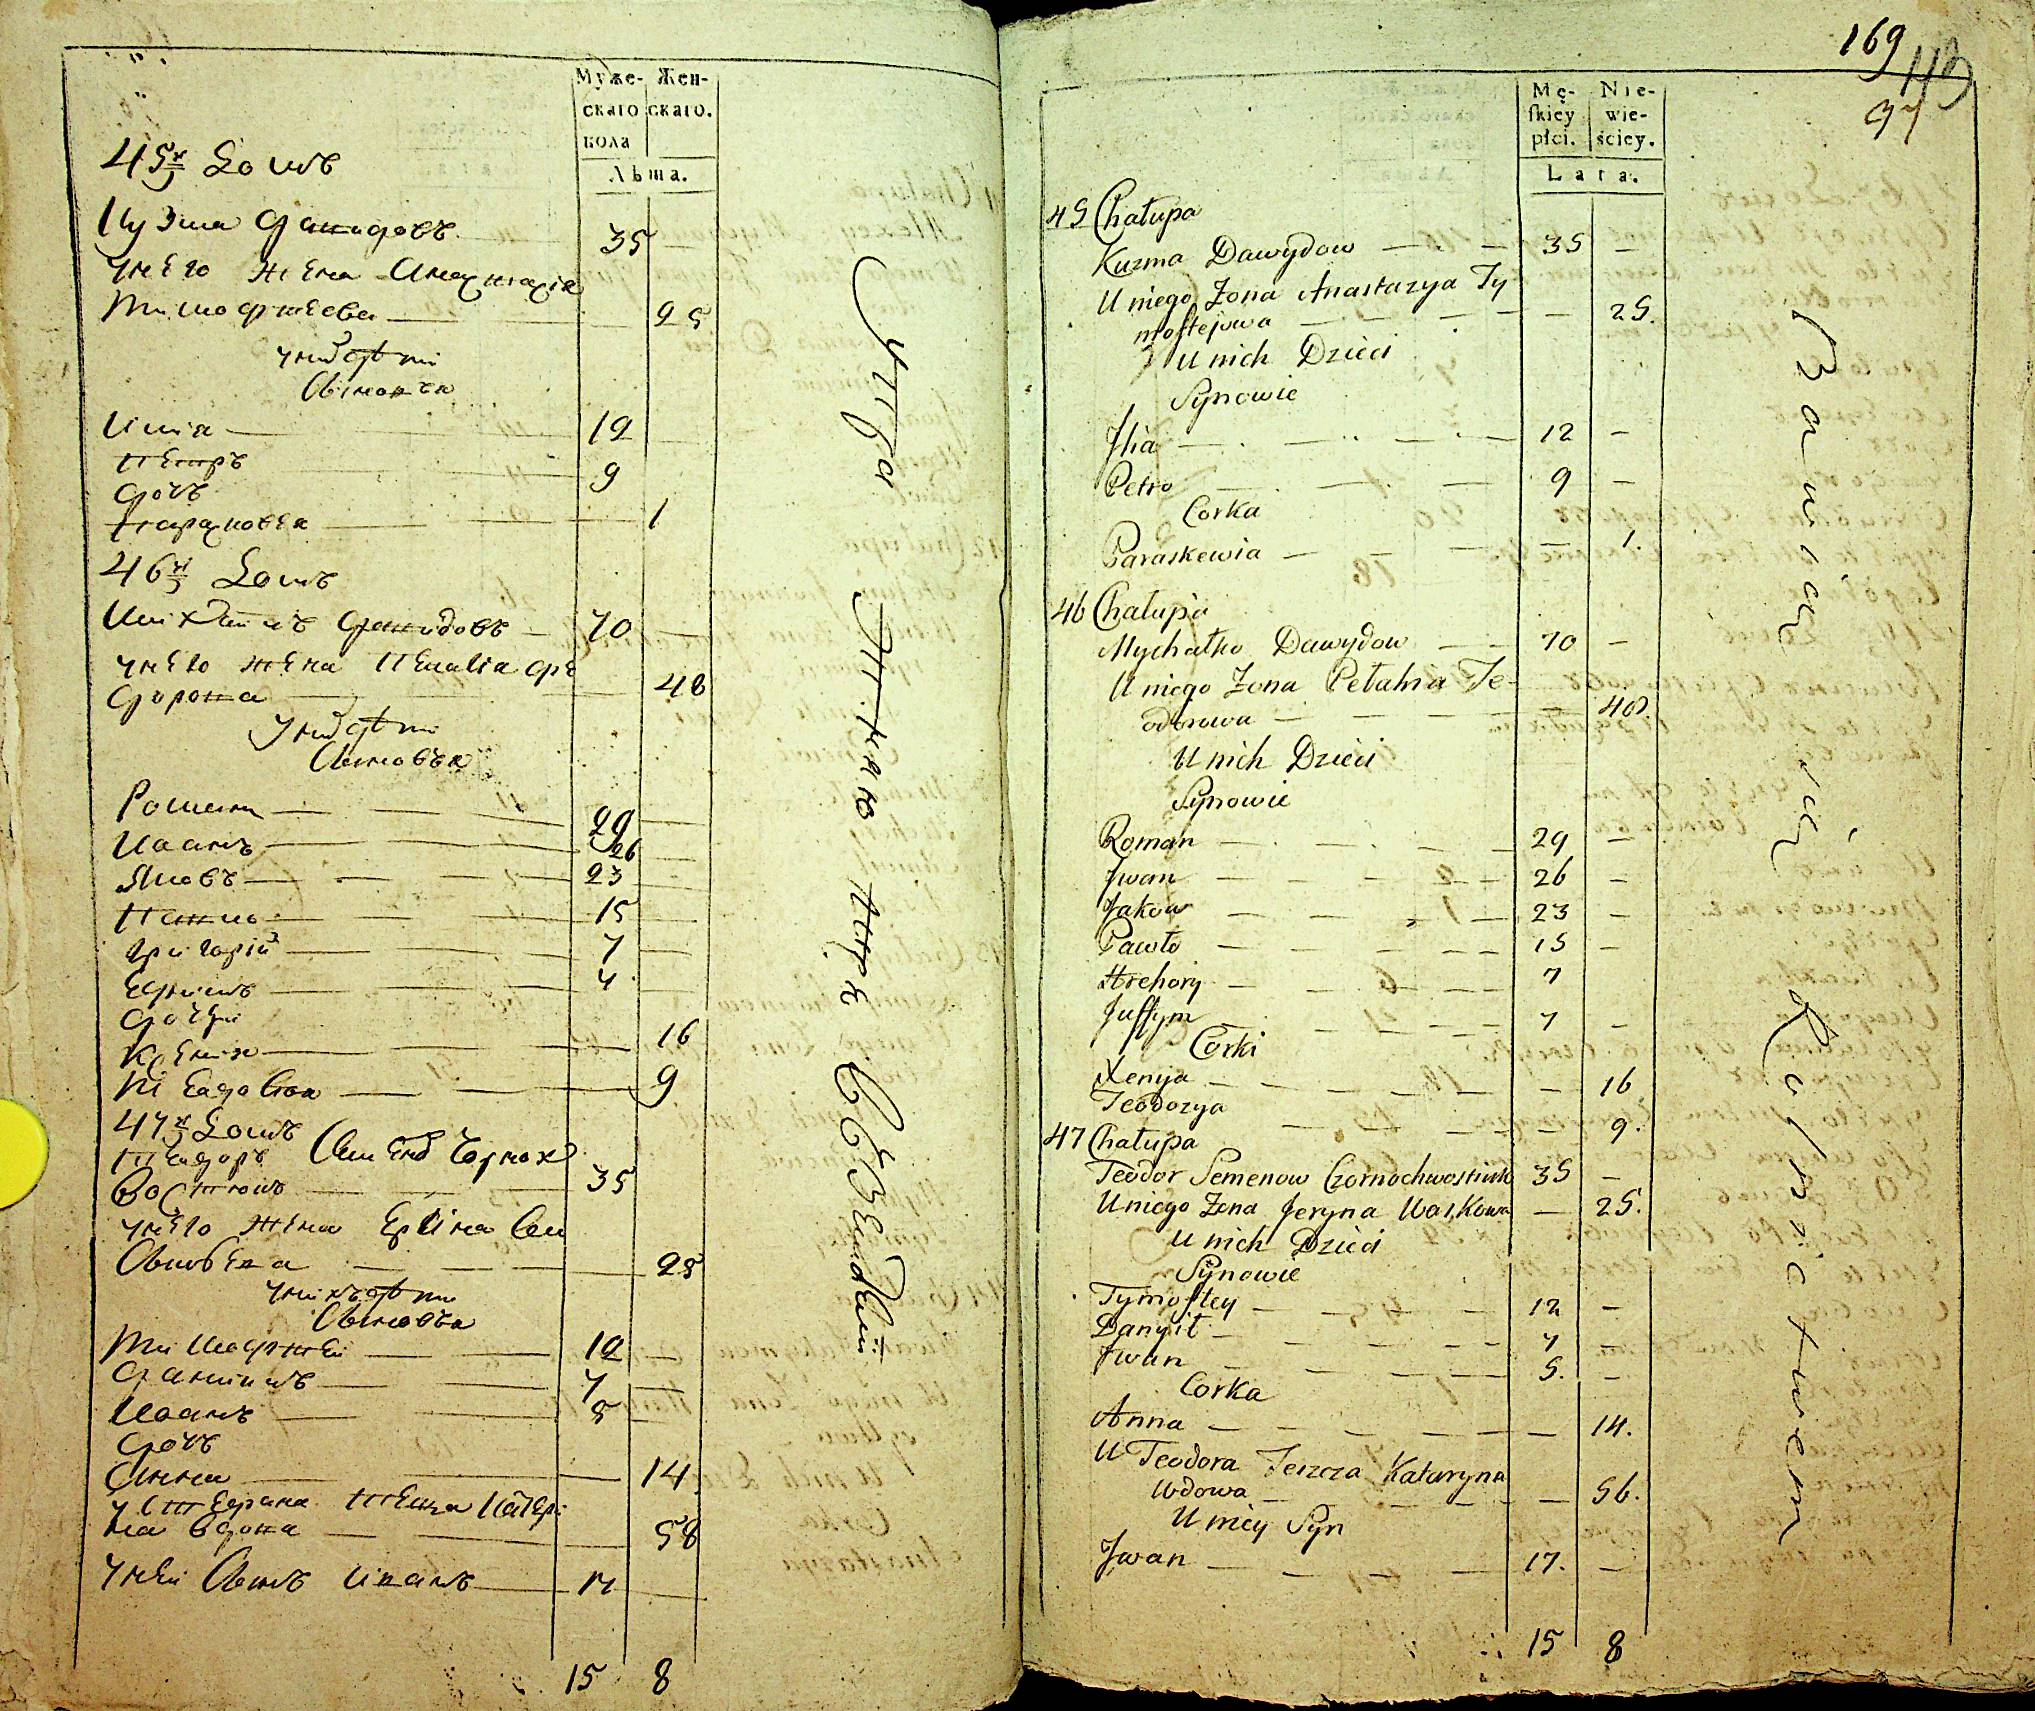 Муже- Жен-
скаго скаго.
пола
Лѣта.
45й Домъ
Кузма Давидовъ 35 —
у него жена Анастасія
Тимофтеева — 25
у них дѣти
Сыновья
Илія — 12
Петръ 9
дочъ
Парасковея — 1
46й Домъ
Михайло Давидовъ — 70 —
у него жена Пелагія Фе
дорова — 48
у них дѣти
Сыновья
Романъ — 29 —
Иванъ — 26 —
Яковъ — 23 —
Павло — 15 —
Григорій — 7 —
Ефимъ — 4 —
дочери
Ксенія — 16
Феодосия — 9
47й Домъ
Теодоръ Семеновъ Чорнох
востюкъ — 35
у него жена Ерина
— 25
у нихъ дѣти
Сыновья
Тимофтей — 12 —
Данило — 7 —
Иванъ — 5 —
дочъ
Анна — 14
теща Катери
на вдова — 56
у ней Сынъ Иванъ — 17 —
15 8
169
Mę- Nie-
ſkiéy wie-
płci. ściey.
Lata.
45 Chałupa
Kuzma Dawydow — 35 —
U niego Żona Anastazya Ty
moftejowa — 25.
U nich Dzieci
Synowie
Jlia — 12 —
Petro — 9 —
Corka
Paraskewia — 1.
46 Chałupa
Mychałko Dawydow — 70 —
U niego Żona Pełahia Te-
odorowa — 48.
U nich Dzieci
Synowie
Roman — 29 —
Jwan — 26 —
Jakow — 23 —
Pawło — 15 —
Hrehory — 7
Juffym — 7 —
Corki
Xenija — 16
Teodozya — 9.
47 Chałupa
Teodor Semenow Czornochwostiuk 35 —
U niego Żona Jeryna Waskowa — 25.
U nich Dzieci
Synowie
Tymoftey — 12 —
Danyił — 7 —
Jwan — 5. —
Corka
Anna — 14.
U Teodora Teszcza Kataryna
Wdowa — 56.
U niey Syn
Jwan — 17. —
15 8